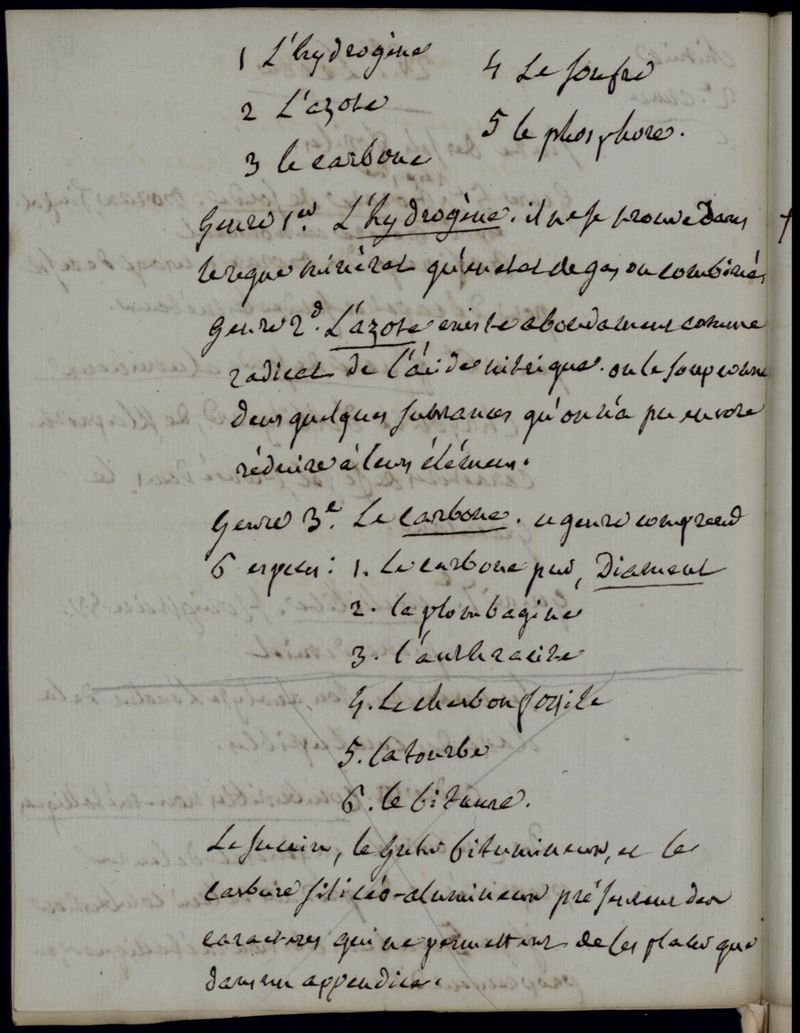 1 L'hydrogène
2 L'azote
3 le carbone
4 Le soufre
5 le phosphore.
Genre 1er. L'hydrogène. il ne se trouve dans
le regne minéral qu'en etat de gas ou combinés
Genre 2d. L'azote existe abondament comme
radical de l'acide nitrique. on le soupconne
dans quelques substances qu'on n'a pu encore
réduire à leurs élémens.
Genre 3e. Le carbone. ce genre comprend
6 especes: 1. Le carbone pur, Diamant
2. la plombagine
3. l'anthracite
4. Le charbon fossile
5. la tourbe
6. le bitume.
Le succin, le bitumineux, et le
carbure siliceo-alumineux présentent des
caracteres qui ne permettent de les placer que
dans un appendice.